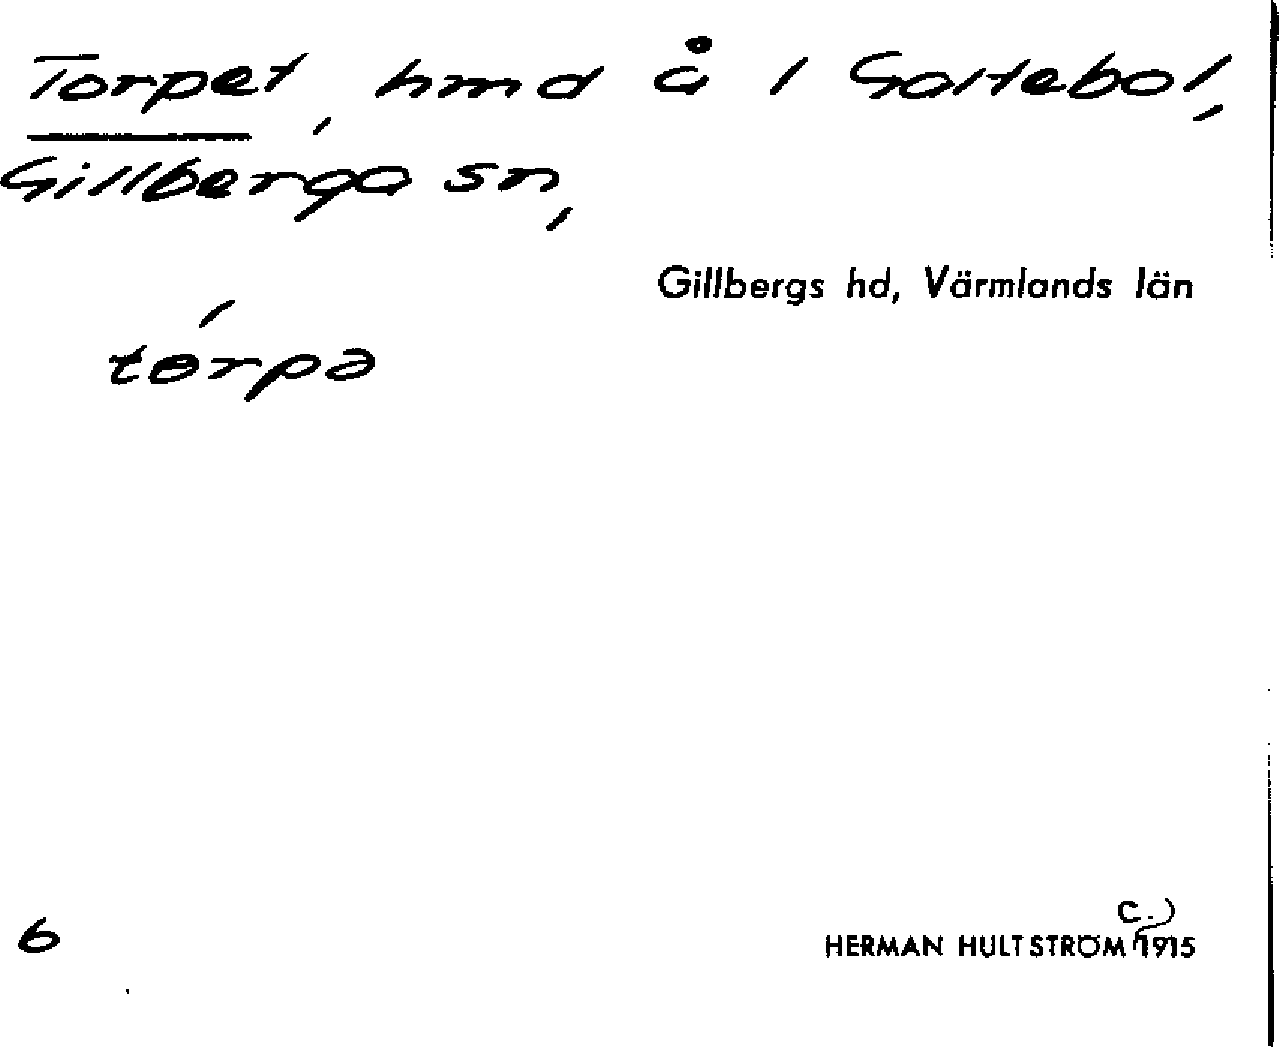 Torpet, hmd å 1 Goltebol,
Gillberga sn,
Gillbergs hd, Värmlands län
´
tɵrpə
6
c.)
HERMAN HULTSTRÖM 1915